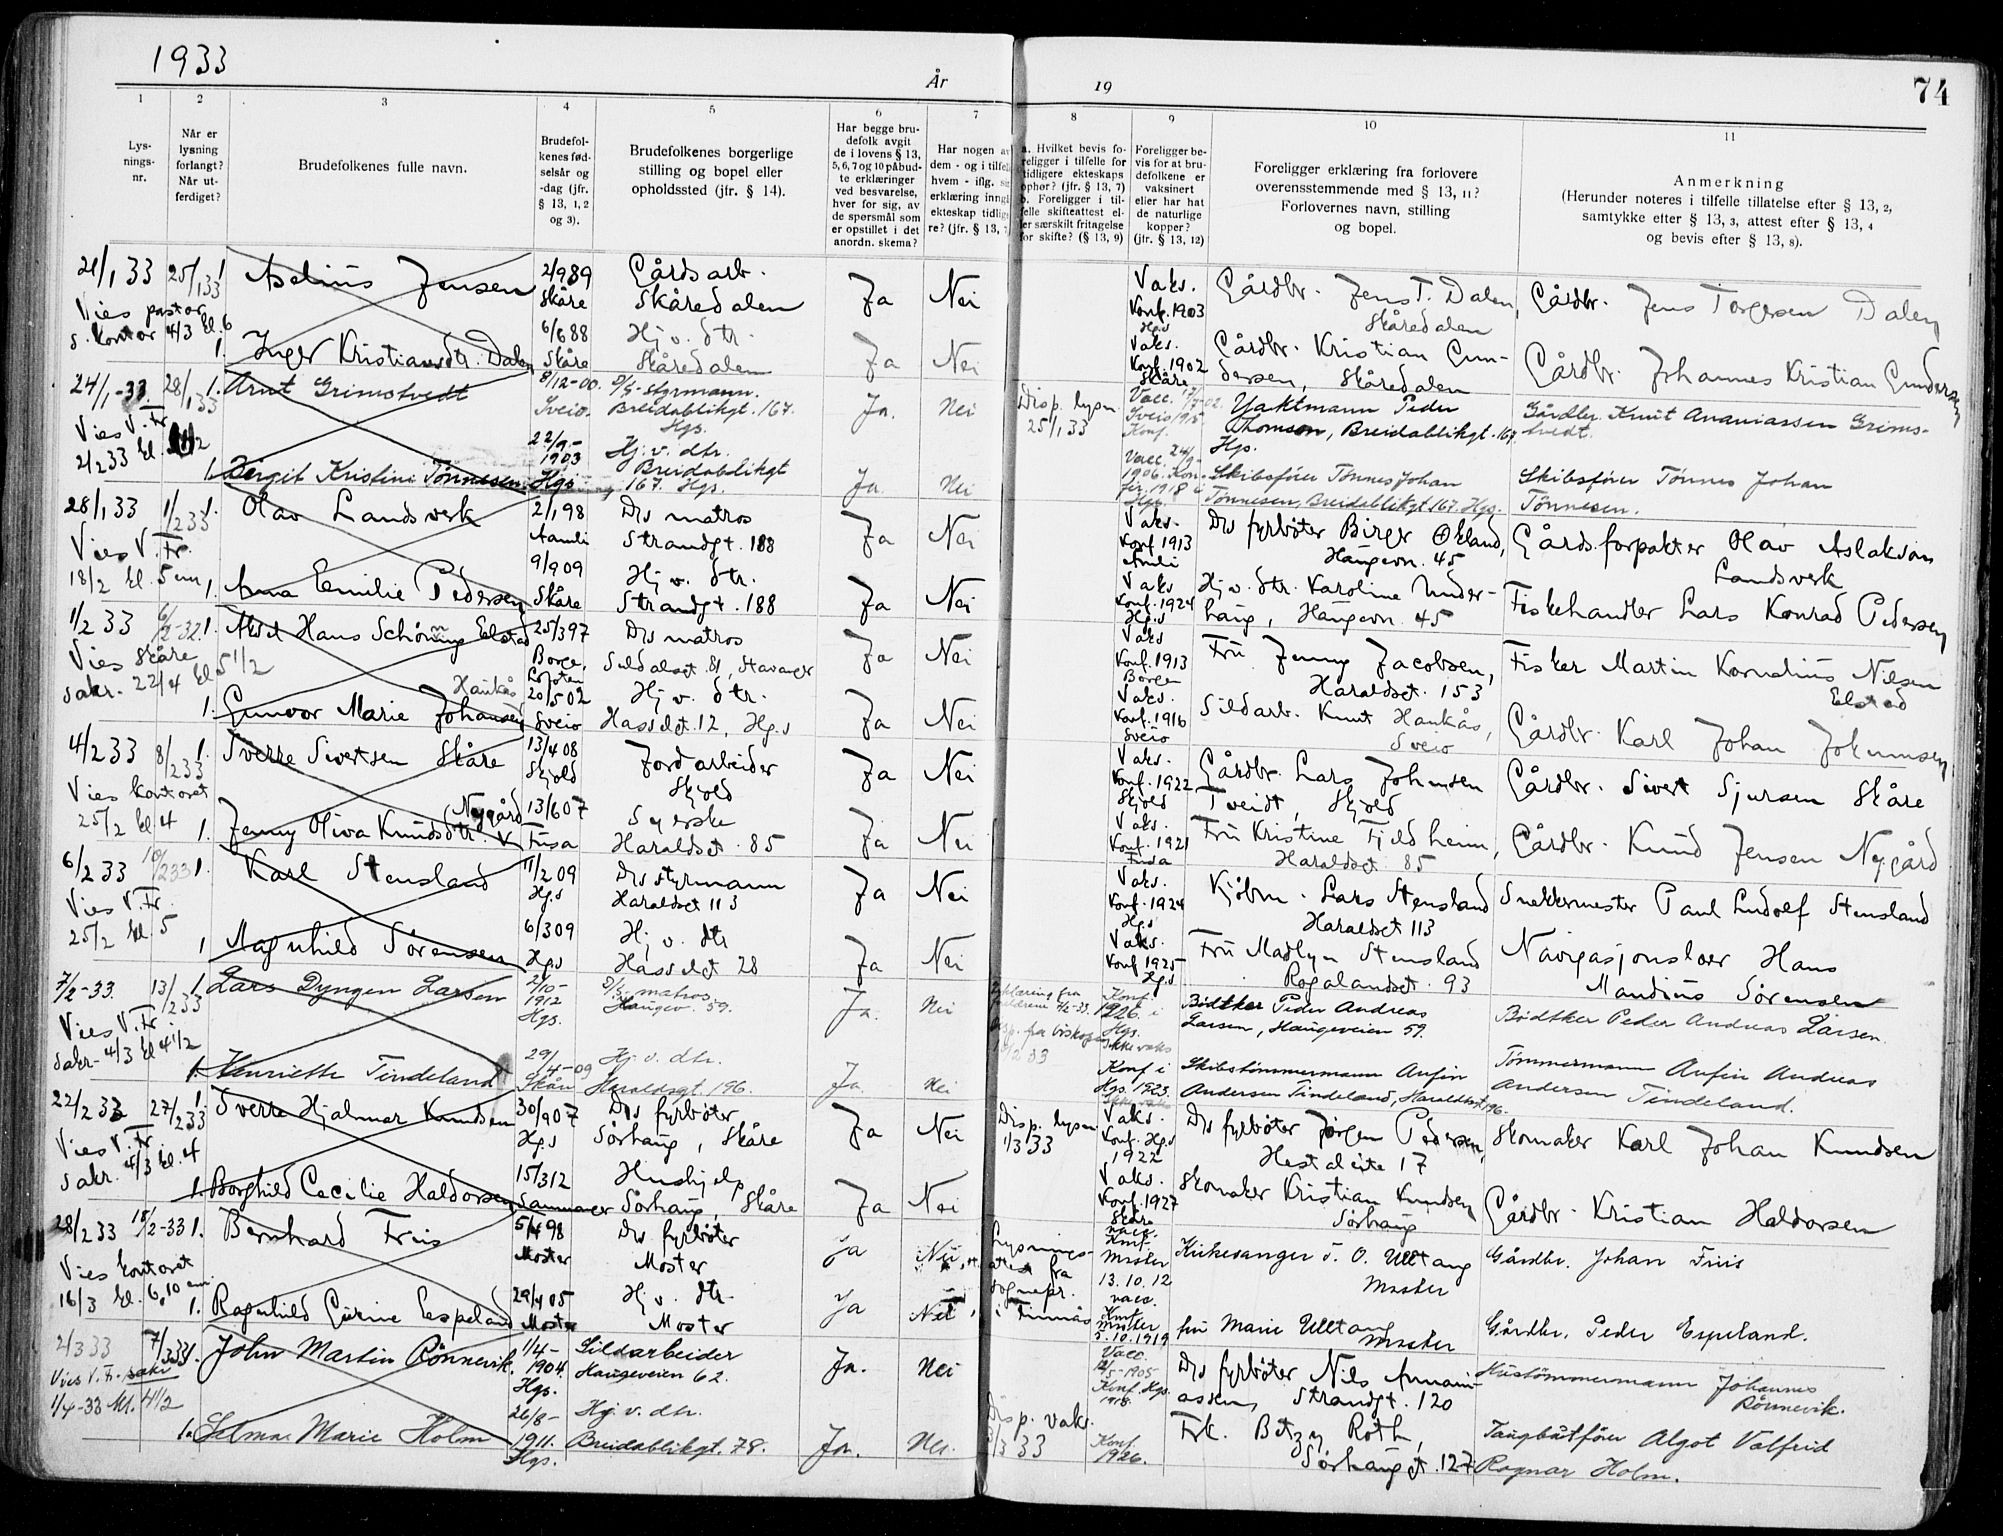 1933
År
19
74
1
2
3
4
5
6
7
8
9
10
11
Lys-
nings-
nr.
Når er
lysning
forlangt?
Når ut-
ferdiget?
Brudefolkenes fulle navn.
Brudefol-
kenes fød-
selsår og
-dag (jfr.
§ 13, 1, 2
og 3).
Brudefolkenes borgerlige
stilling og bopel eller
opholdssted (jfr. § 14).
Har begge bru-
defolk avgit
de i lovens § 13,
5, 6, 7 og 10 påbud-
te erklæringer
ved besvarelse,
hver for sig, av
de spørsmål som
er opstillet i det
anordn. skema?
Har nogen av
dem - og i tilfelle
hvem - iflg.
erklæring inngå
ekteskap tidlige
re? (jfr. § 13,
a. Hvilket bevis fo-
religger i tilfelle for
tidligere ekteskaps
ophør? (jfr. § 13, 7)
b. Foreligger i til-
felle skifteattest el-
ler særskilt fritagelse
for skifte? (§ 13, 9)
Foreligger be-
vis for at bru-
defolkene er
vaksinert
eller har hat
de naturlige
kopper?
(jfr. § 13, 12)
Foreligger erklæring fra forlovere
overensstemmende med § 13, 11?
Forlovernes navn, stilling
og bopel.
Anmerkning
(Herunder noteres i tilfelle tillatelse efter § 13, 2,
samtykke efter § 13, 3, attest efter § 13, 4
og bevis efter § 13, 8).
21/1 33 25/1 33 1 Aselius Jensen 2/9 89 Skåre Gårdsarb. Skåredalen Ja Nei Vaks. Konf. 1903 Gårdbr. Jens T. Dalen, Skåredalen Gårdbr. Jens Torgersen Dalen
Vies pastor
s. kontor 4/3 kl. 6
1. Inger Kristiansdtr. Dalen 6/6 88 Skåre Hj v. dtr. Skåredalen Ja Nei Vaks. Konf. 1902 Skåre Gårdbr. Kristian Gundersen, Skåredalen Gårdbr. Johannes Kristian Gundersen
24/1-33. 28/1 33 1. Arnt Grimstvedt 8/12-00. Sveio. D/S-styrmann. Breidablikgt. 167. Hgs. Ja. Nei Disp. lysn. 25/1 33 Vacc. Sveio 1915 Konf. Yaktmann Peder Thomsen, Breidablikgt. 167 Hgs. Gårdbr. Knut Ananiassen Grimstvedt.
Vies V. Fr
2/2 33 kl
1. Birgit Kristine Tønnesen. 22/9-1903 Hgs Hj. v. dtr. Breidablikgt 167. Hgs. Ja. Nei Vacc. 24/9-1906. Konfir. 1918 i Hgs. Skibsfører Tønnes Johan Tønnesen, Breidablikgt. 167. Hgs. Skibsfører Tønnes Johan Tønnesen.
28/1 33 1/2 33 1. Olav Landsverk 2/1 98 Aamli Ds matros Strandgt. 188 Ja Nei Vaks. Konf. 1913 Amli Ds fyrbøter Birger Økland, Haugevn. 45 Gårdsforpakter Olav Aslakson Landsverk
Vies V. Fr.
18/2 kl. 5 em
1. Anna Emilie Pedersen 9/9 09 Skåre Hj v. dtr. Strandgt. 188 Ja Nei Vaks Konf. 1924 Hgs Hj v. dtr. Karoline Underhaug, Haugevn. 45 Fiskehandler Lars Konrad Pedersen
1/2 33 6/2-32. 1. Aksel Hans Schönning Elstad 25/3 97 Borge, Lofoten Ds matros Sildalset 81, Stavanger Ja Nei Vaks Konf. 1913 Borgen Fru Jenny Jacobsen, Haraldset. 153 Fisker Martin Kornelius Nilsen Elstad
Vies Skåre
sakr. 22/4 kl 5 1/2
1. Gunvor Marie Johansen Haukås 20/5 02 Sveio Hj v. dtr. Hasselgt. 12, Hgs Ja Nei Vaks. Konf. 1916 Sveio Sildarb. Knut Haukås, Sveio Gårdbr. Karl Johan Johannsen
4/2 33 8/2 33 1. Sverre Sivertsen Skåre 13/4 08 Skjold Jordarbeider Skjold Ja Nei Vaks. Konf. 1922 Skjold Gårdbr. Lars Johnsen Tveidt, Skjold Gårdbr. Sivert Sjursen Skåre
Vies kontoret
25/2 kl 4
1. Jenny Oliva Knudsdtr. (Nygård) 13/6 07 Fusa Syerske Haraldset. 85 Ja Nei Vaks. Konf. 1921 Fusa Fru Kristine Fjeldheim, Haraldset. 85 Gårdbr. Knud Jensen Nygård
6/2 33 10/2 33 1. Karl Stensland 11/2 09 Hgs Ds styrmann Haraldset 113 Ja Nei Vaks. Konf. 1924 Hgs Kjøbm. Lars Stensland Haraldset 113 Snekkermester Paul Ludolf Stensland
Vies V. Fr.
25/2 kl. 5
1 Magnhild Sørensen 6/3 09 Hgs Hj v. dtr Hasselgt 28 Ja Nei Vaks. Konf 1925 Hgs Fru Madlyn Stensland Rogalandset. 93 Navigasjonslær Hans Maudius Sørensen
7/2-33. 13/2 33 1. Lars Dyngen Larsen 2/10-1912 Hgs. D/S-matros Haugev. 59. Ja. Nei Konf. 1926. i Hgs. Ikke vaks Bødtker Peder Andreas Larsen, Haugeveien 59. Bødtker Peder Andreas Larsen.
Vies V. Fr.
sakr- 4/3 kl 4 1/2
1. Henriette Tindeland 29/4-09 Skåre Hj. v. dtr. Haraldsgt. 196. Ja Nei Konf i Hgs. 1923. Skibstømmermann Anfin Andersen Tindeland, Haraldset 196. Tømmermann Anfin Andreas Andersen Tindeland.
22/2 33 27/2 33 1. Sverre Hjalmar Knudsen 30/9 07 Hgs Ds fyrbøter Sørhaug, Skåre Ja Nei Disp. lysn 1/3 33 Vaks. Konf. Hgs 1922 Ds fyrbøter Jørgen Pedersen, Hestaleite 17 Skomaker Karl Johan Knudsen
Vies V. Fr
sakr. 4/3 kl. 4
1. Borghild Cecilie Haldorsen 15/3 12 Samnanger Hushjelp Sørhaug, Skåre Ja Nei Vaks. Konf. 1927 Skåre Skomaker Kristian Knudsen Sørhaug Gårdbr. Kristian Haldorsen
28/2 33 18/2-33 1. Bernhard Friis 5/4 98 Moster Ds fyrbøter Moster Ja Nei Lysningsattest fra sognepr. i Finnås vacc. Konf. Moster 13.10.12 Kirkesanger J. O. Ulltang Moster Gårdbr. Johan Friis
Vies kontoret
16/3 kl. 6,10 em.
1. Ragnhild Gurine Espeland 29/4 05 Moster Hj v. dtr. Moster Ja Nei vacc. Konf Moster 5.10.1919 fru Marie Ulltang Moster Gårdbr. Peder Espeland.
2/3 33 7/3 33 1. John Martin Rönnevik. 1/4-1904. Hgs. Sildarbeider Haugeveien 62. Ja. Nei Vacc. 12/5-1905 Konf. Hgs. 1918. Ds fyrbøter Nils Annaniassen, Strandgt. 120 Hustømmermann Johannes Rönnevik.
Vies V. Fr. sakr
1/4-33 kl. 4 1/2
1. Selma Marie Holm 26/8-1911. Hgs. Hj. v. dtr. Breidablikgt. 78. Ja. Nei. Disp. vaks. 33 Konf 1926. Frk. Betzy Roth, Sørhauggt. 127 Taugbåtfører Algot Valfrid Ragnar Holm.